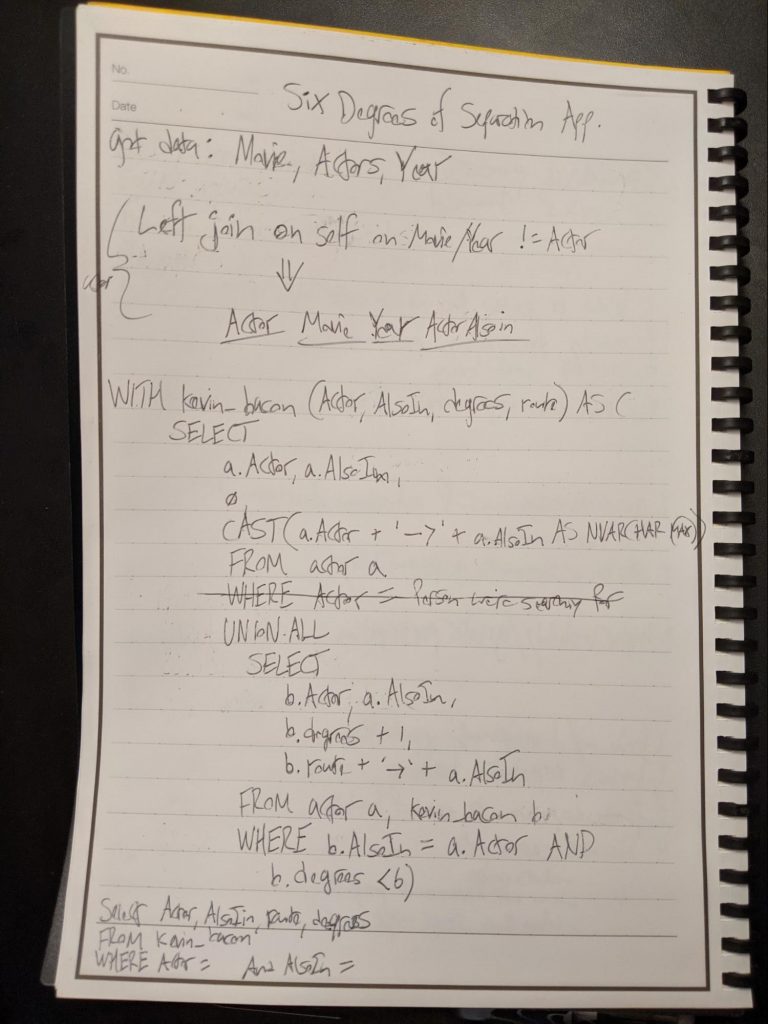 No.
Six Degrees of Separation App.
Date
get data: Movie, Actors, Year
Left join on self on Movie/Year != Actor
⇓
Actor Movie Year ActorAlsoin
WITH kevin_bacon (Actor, AlsoIn, degrees, route) AS (
SELECT
a.Actor, a.AlsoIn,
0
CAST(a.Actor + '->' + a.AlsoIn AS NVARCHAR(MAX))
FROM actor a
WHERE Actor = Person we're searching for
UNION ALL
SELECT
b.Actor, a.AlsoIn,
b.degrees + 1,
b.route + '->' + a.AlsoIn
FROM actor a, kevin_bacon b
WHERE b.AlsoIn = a.Actor AND
b.degrees <6)
Select Actor, AlsoIn, route, degrees
FROM kevin_bacon
WHERE Actor = And AlsoIn =